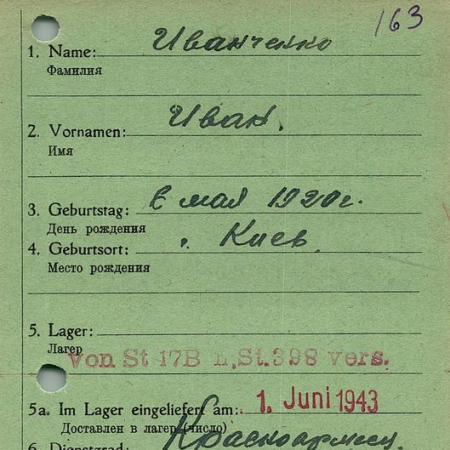 163
1. Name: Иванченко
Фамилия
2. Vornamen: Иван.
Имя
3. Geburtstag: 6 мая 1920 г.
День рождения
4. Geburtsort: г. Киев
Место рождения
5. Lager:
Лагер
Von St 17B n. St. 398 vers.
5a. Im Lager eingeliefert am: 1. Juni 1943
Доставлен в лагер (число)
6. Dienstgrad: Красноармеец